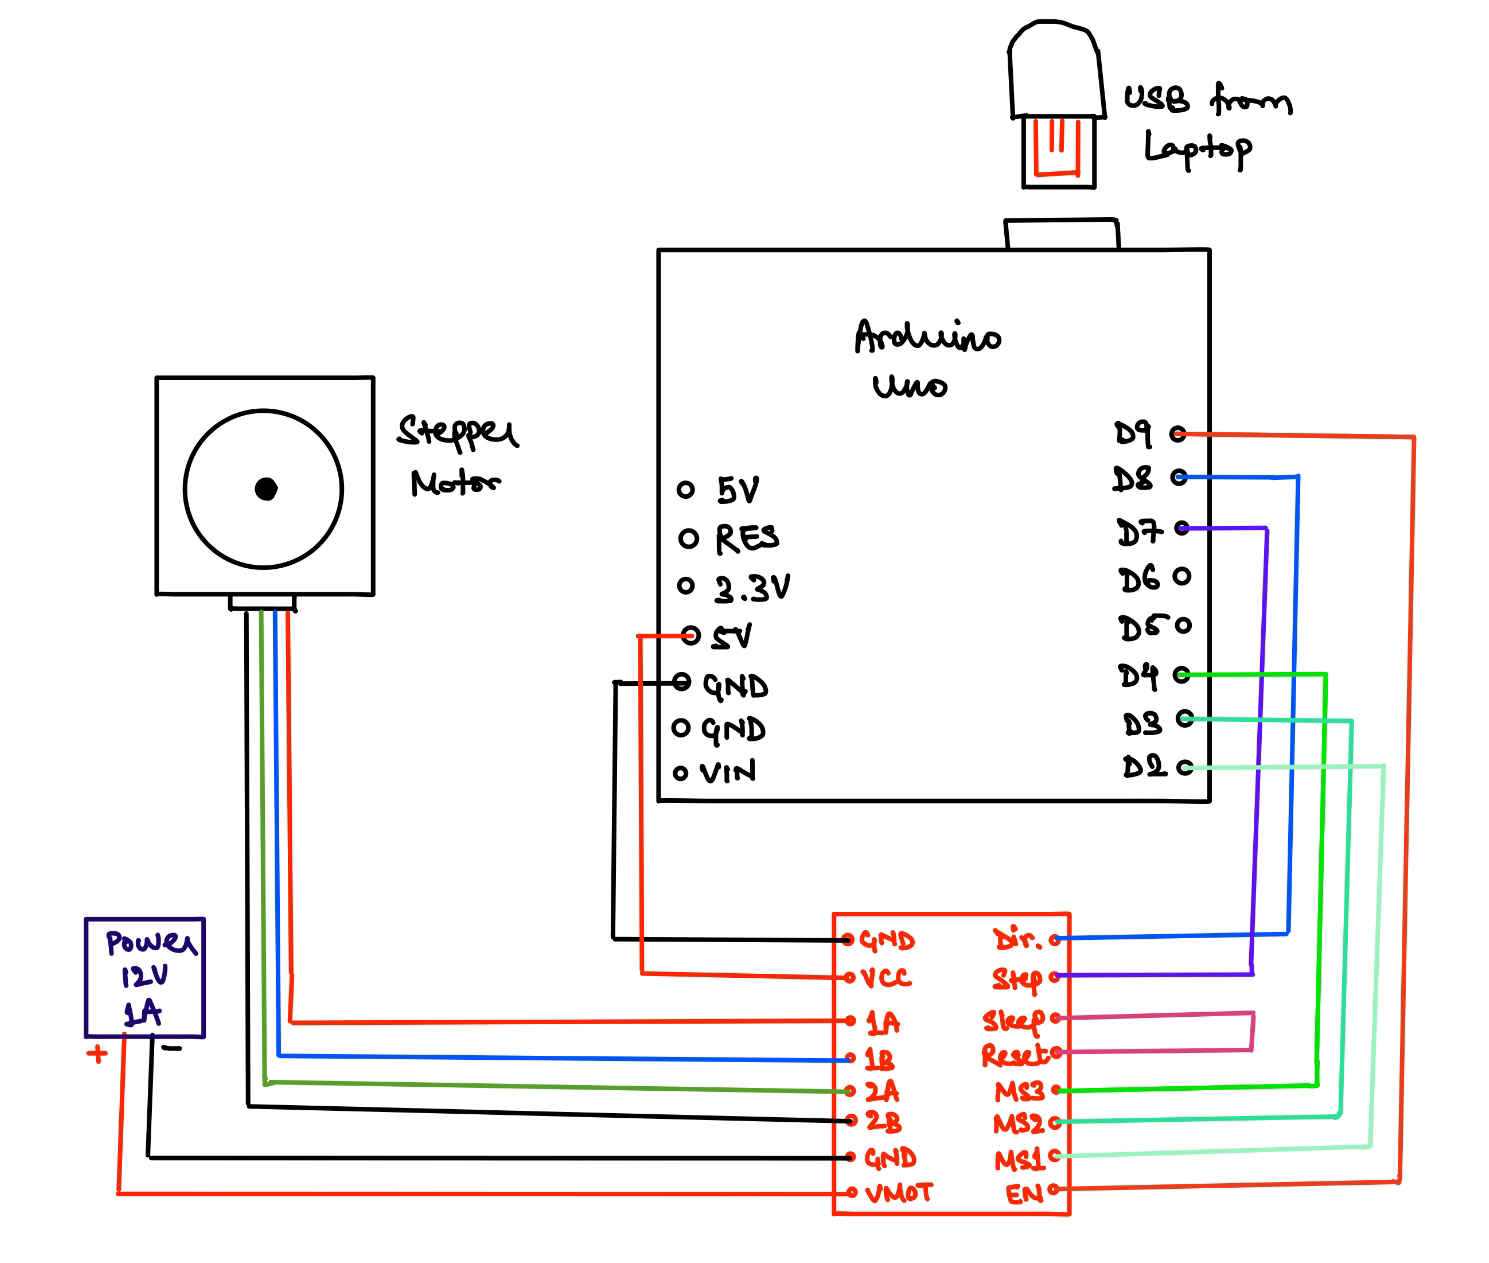 USB from
Laptop
Arduino
Uno
Stepper
Motor
5V
RES
3.3V
5V
GND
GND
VIN
D9
D8
D7
D6
D5
D4
D3
D2
Power
12V
1A
+
-
GND
VCC
1A
1B
2A
2B
GND
VMOT
Dir.
Step
Sleep
Reset
MS3
MS2
MS1
EN